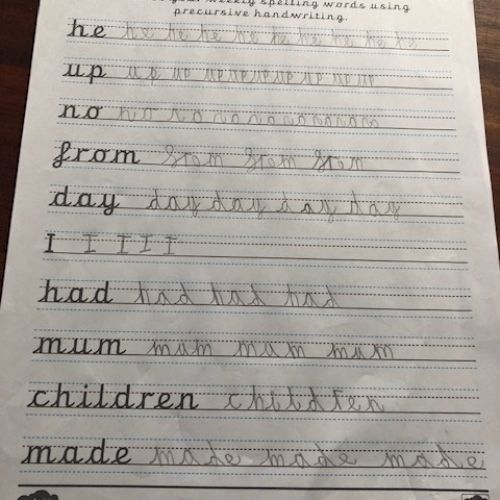 your weekly spelling words using
precursive handwriting.
he he he he he he he he he he
up up up up up up up up up up
no no no no no no no no no no
from from from from
day day day day day
I I I I I
had had had had
mum mum mum mum
children children
made made made made